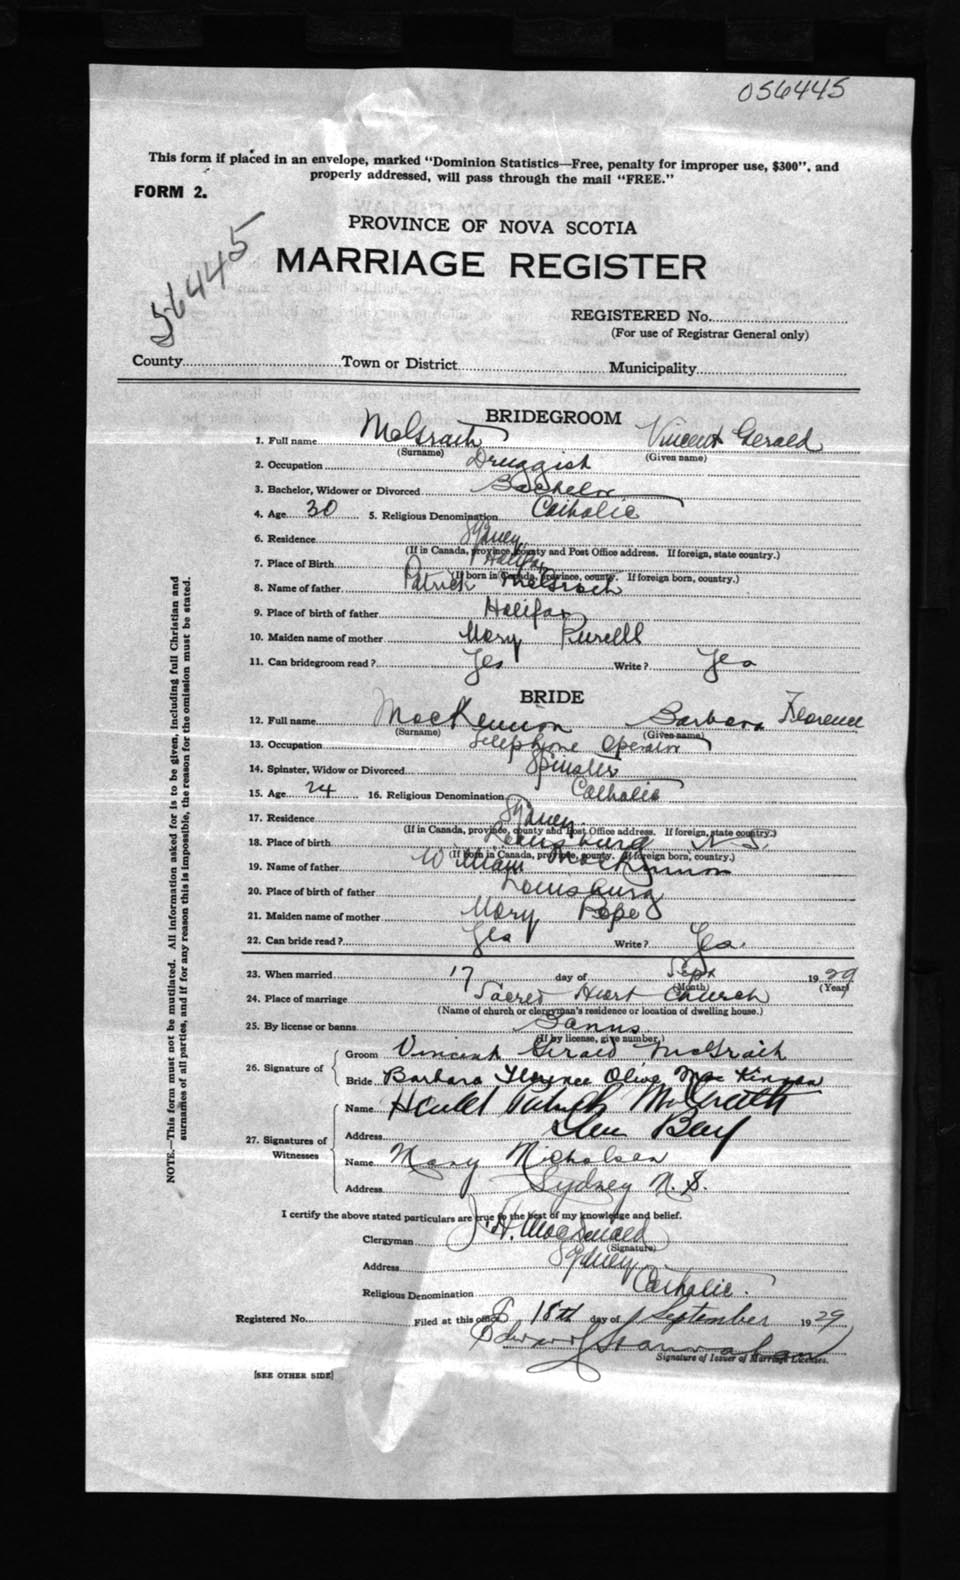 056445
This form if placed in an envelope, marked "Dominion Statistics—Free, penalty for improper use, $300", and
properly addressed, will pass through the mail "FREE."
FORM 2.
56445
PROVINCE OF NOVA SCOTIA
MARRIAGE REGISTER
REGISTERED No.
(For use of Registrar General only)
County Town or District Municipality
NOTE.—This form must not be mutilated. All information asked for is to be given, including full Christian and
surnames of all parties, and if for any reason this is impossible, the reason for the omission must be stated.
BRIDEGROOM
1. Full name McGrath Vincent Gerald
(Surname) (Given name)
2. Occupation Druggist
3. Bachelor, Widower or Divorced Bachelor
4. Age 30 5. Religious Denomination Catholic
6. Residence Sydney
(If in Canada, province, county and Post Office address. If foreign, state country.)
7. Place of Birth Halifax
(If born in Canada, province, county. If foreign born, country.)
8. Name of father Patrick McGrath
9. Place of birth of father Halifax
10. Maiden name of mother Mary Purcell
11. Can bridegroom read? Yes Write? Yes
BRIDE
12. Full name MacKinnon Barbara Florence
(Surname) (Given name)
13. Occupation Telephone Operator
14. Spinster, Widow or Divorced Spinster
15. Age 24 16. Religious Denomination Catholic
17. Residence Sydney
(If in Canada, province, county and Post Office address. If foreign, state country.)
18. Place of birth Louisburg N.S.
(If born in Canada, province, county. If foreign born, country.)
19. Name of father William MacKinnon
20. Place of birth of father Louisburg
21. Maiden name of mother Mary Pope
22. Can bride read? Yes Write? Yes.
23. When married 17 day of Sept 1929
(Month) (Year)
24. Place of marriage Sacred Heart Church
(Name of church or clergyman's residence or location of dwelling house.)
25. By license or banns Banns
(If by license, give number.)
26. Signature of
Groom Vincent Gerald McGrath
Bride Barbara Florence Olive MacKinnon
27. Signatures of Witnesses
Name Patrick McGrath
Address Bay
Name Mary Nicholson
Address Sydney N.S.
I certify the above stated particulars are true to the best of my knowledge and belief.
Clergyman J. H. MacDonald
(Signature)
Address Sydney
Religious Denomination Catholic.
Registered No. Filed at this office 18th day of September 1929
Edward
Signature of Issuer of Marriage Licenses.
[SEE OTHER SIDE]